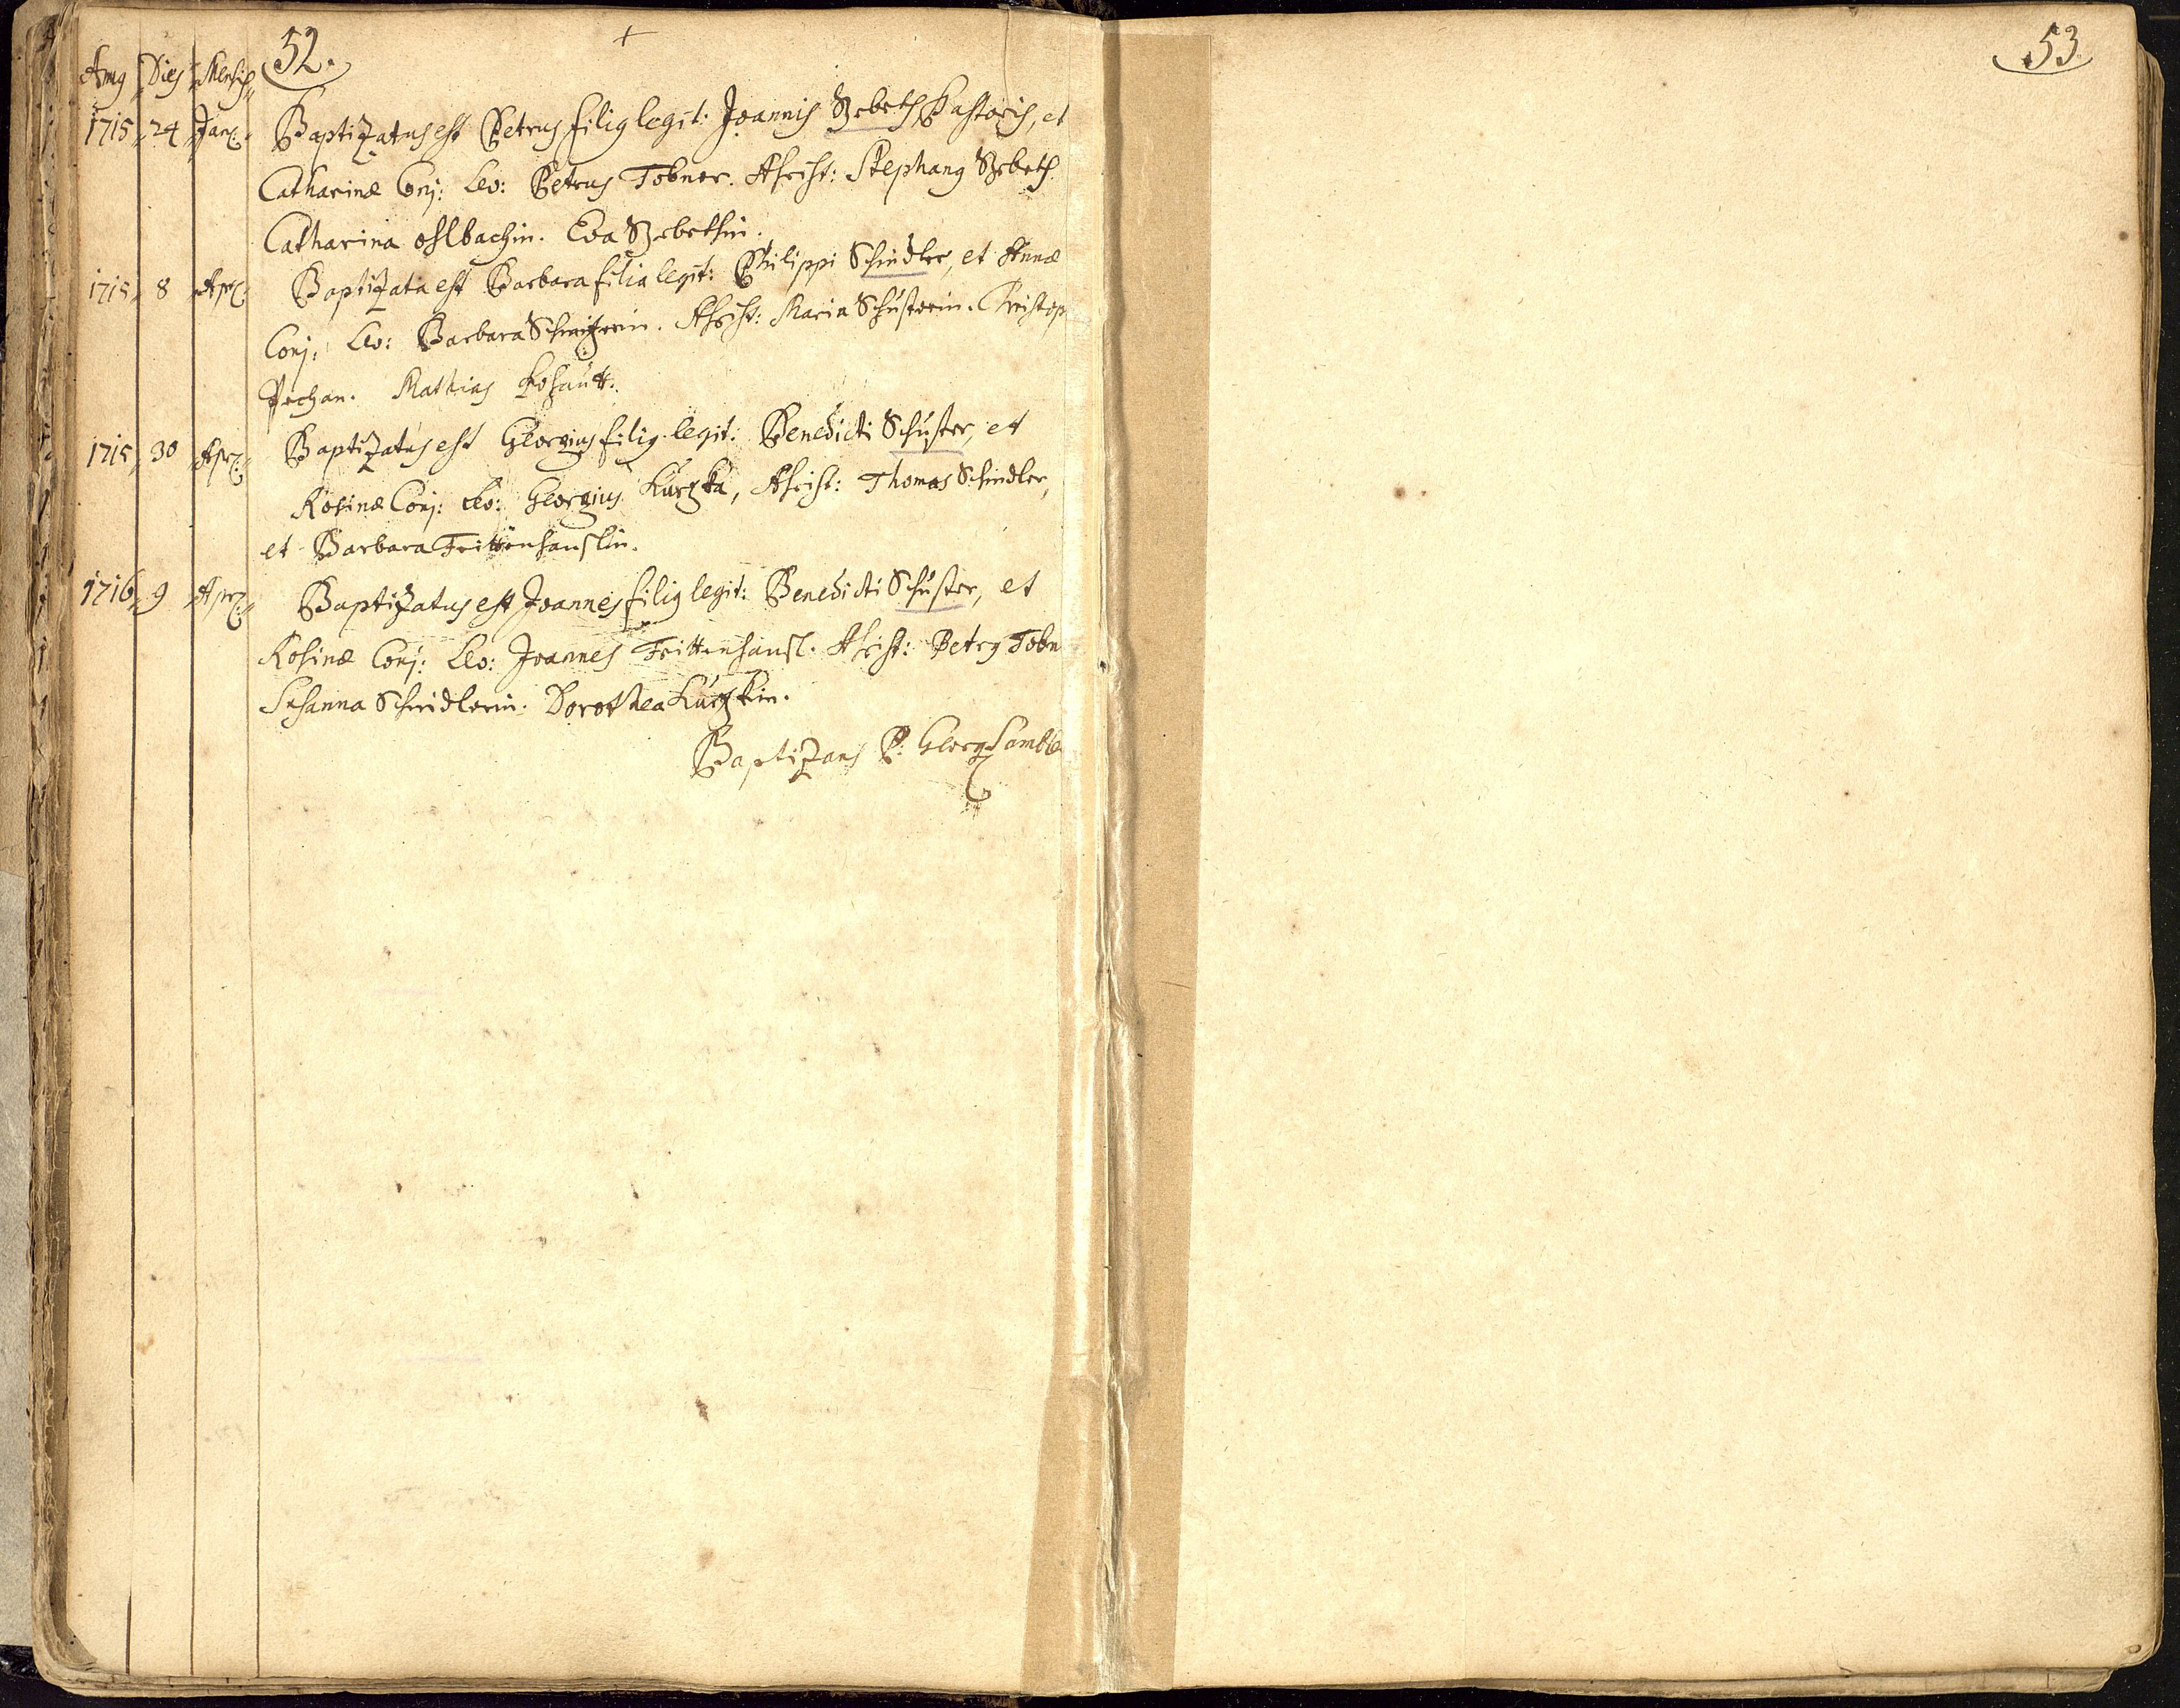 52.
Annus Dies Mensis
1715 24 Jan: Baptizatus est Petrus filius legit: Joannis Pastoris, et
Catharinæ Conj: Lev: Petrus Tobner. Assist: Stephanus
Catharina Eva
1715 8 Apr: Baptizata est Barbara filia legit: Philippi Schindler, et Annæ
Conj: Lev: Barbara Assist: Maria Schusterin. Kristop
Pechan. Mathias Kohautt.
1715 30 Apr: Baptizatus est Georgius filius legit: Benedicti Schuster, et
Rosinæ Conj: Lev: Georgius Kurzka, Assist: Thomas Schindler,
et Barbara Trittenhanslin.
1716 9 Apr: Baptizatus est Joannes filius legit: Benedicti Schuster, et
Rosinæ Conj: Lev: Joannes Trittenhansl. Assist: Petrus Tobn
Susanna Dorothea Kurzkin.
Baptizans P: Georg
53